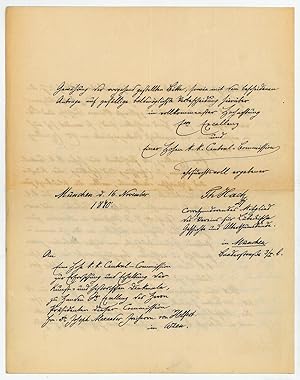 Gewährung der vorstehend gestellten Bitte, sowie mit dem bescheidenen
Antrage auf gefällige Verbescheidung hierüber
in vollkommenster Hochachtung
Sr. Excellenz
und
Einer Hohen K. K. Central-Commission
ergebener
München d. 16. November
Th. Hach,
188
correspondirendes Mitglied
des Vereins für Lübeckische
Geschichte und Alterthumskunde.
in München,
An
Eine Hohe K. K. Central-Commission
zur Erforschung und Erhaltung der
Kunst- und historischen Denkmale,
zu Handen Sr. Excellenz des Herrn
Präsidenten dieser Commission
Hr. Dr. Joseph Alexander Freiherrn von Helfert
in Wien.